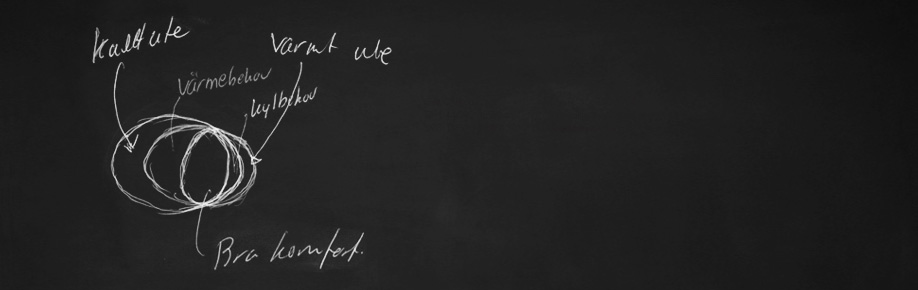 Kallt ute
Varmt ute
Värmebehov
Kylbehov
Bra komfort.